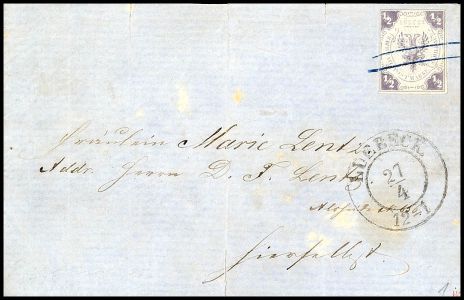 1/2 1/2
1/2 1/2
LUEBECK
27
4
12-1
Fräulein Marie Lentz
Addr. Herrn D. F. Lentz
hierselbst.
1